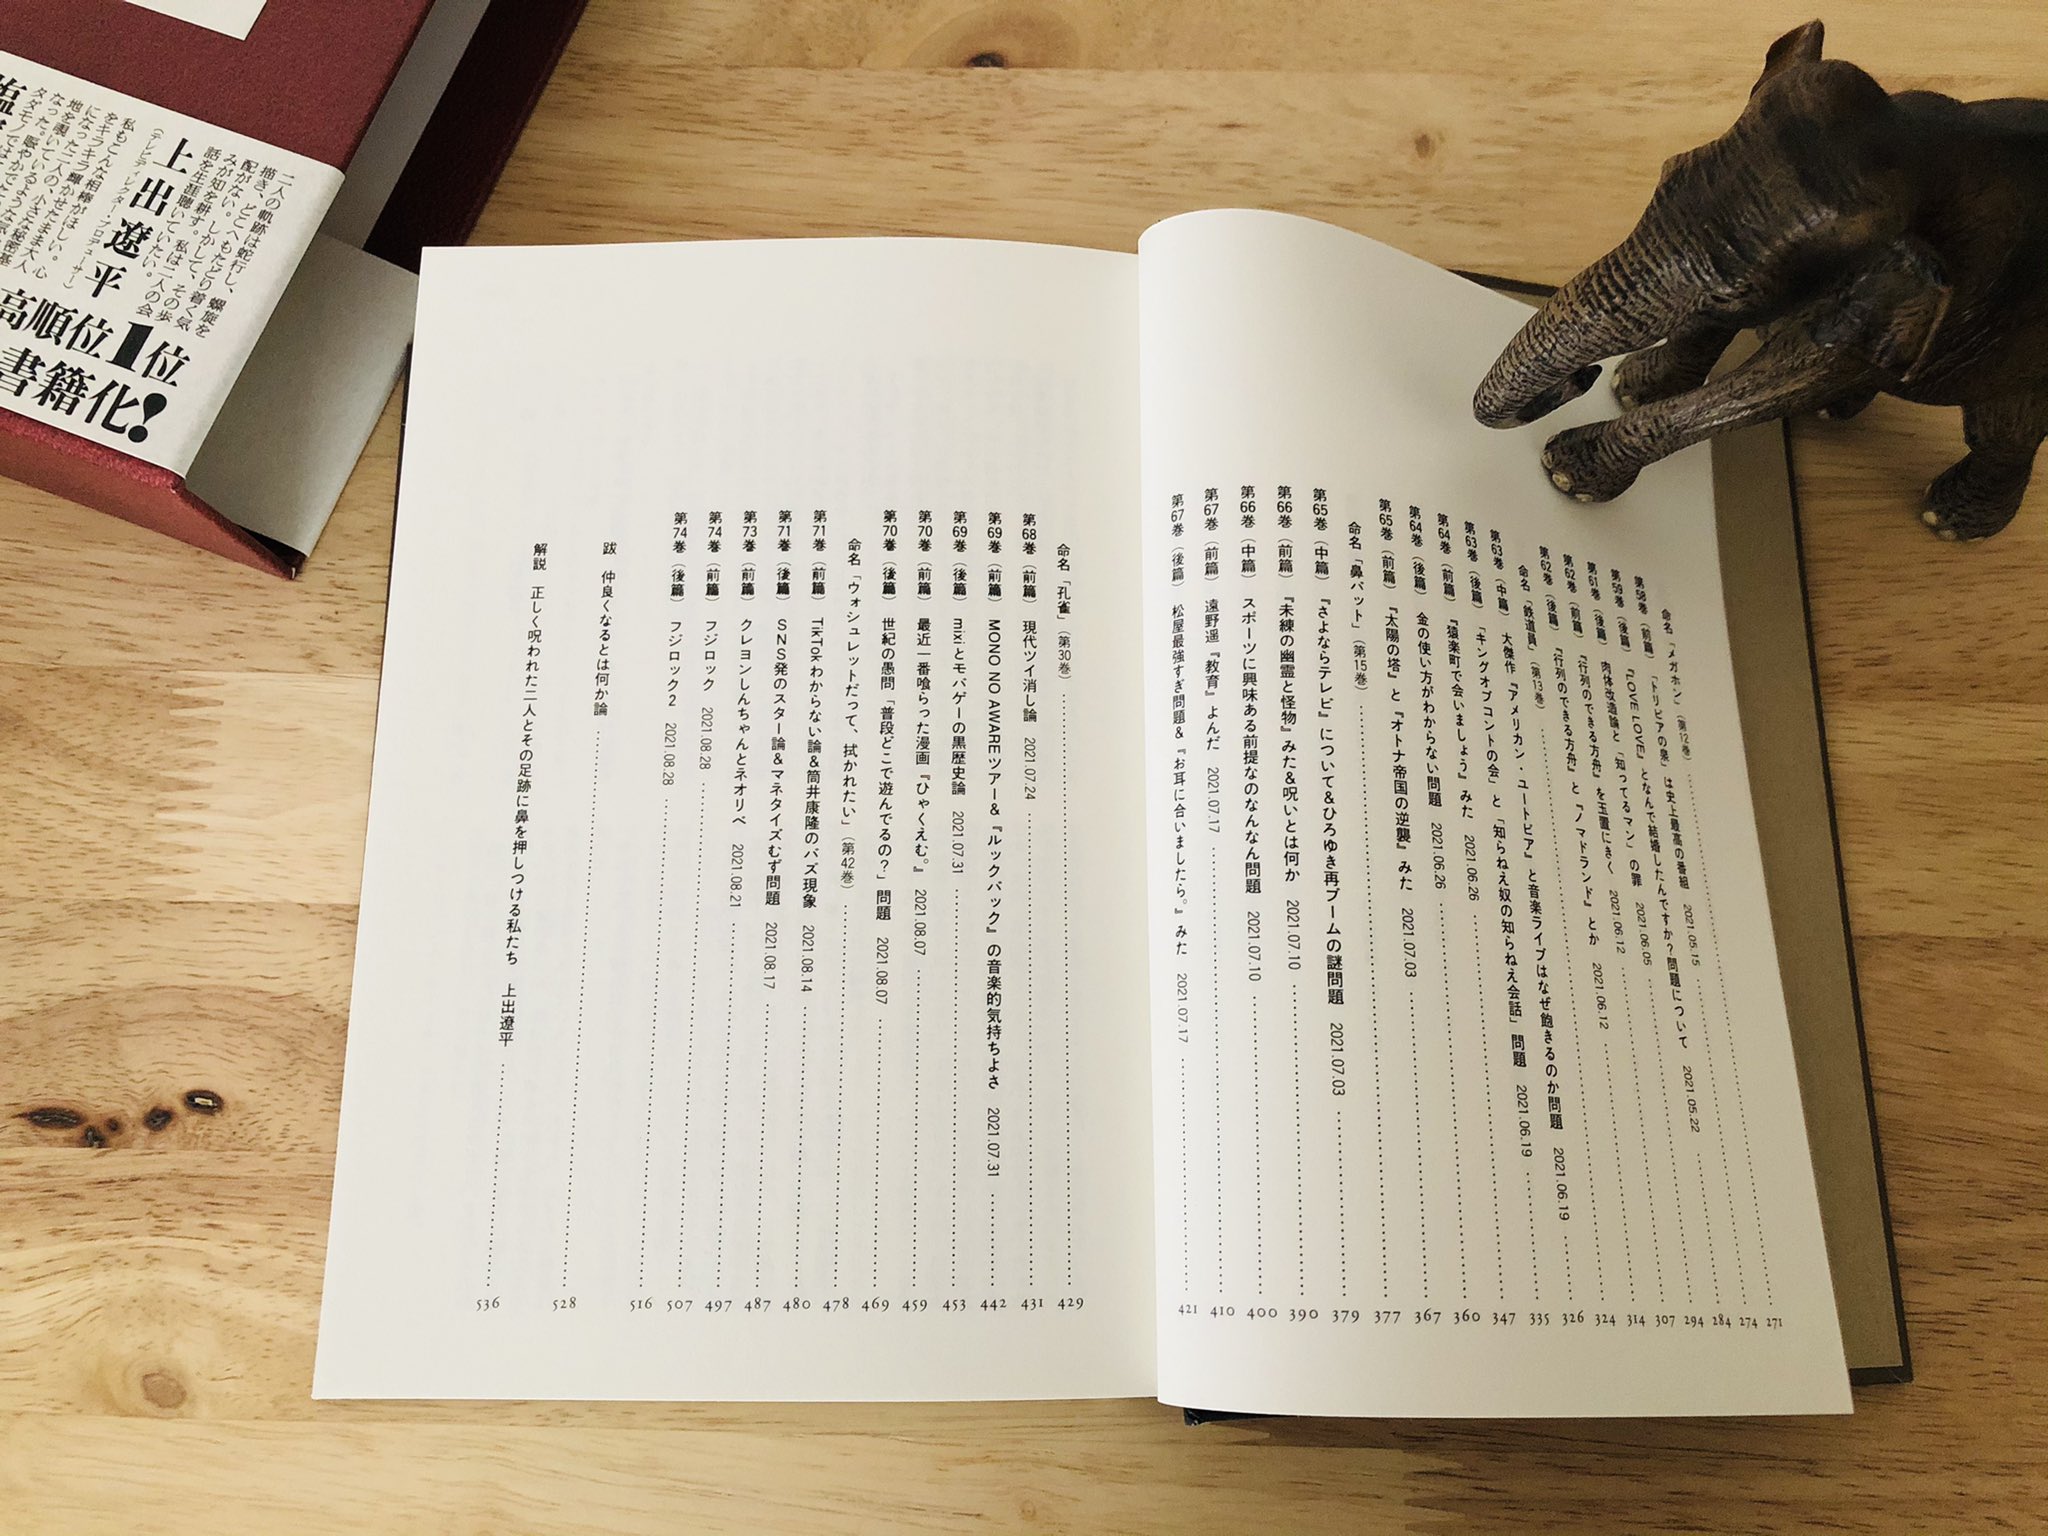 命名「メガホン」（第12巻）……271
第58巻（前篇）「トリビアの泉」は史上最高の番組 2021.05.15……274
第59巻（後篇）『LOVE LOVE!』となんで結婚したんですか?問題について 2021.05.22……284
第61巻（後篇）肉体改造論と「知ってるマン」の罪 2021.06.05……294
第62巻（前篇）『行列のできる方舟』を玉置にきく 2021.06.12……307
第62巻（後篇）『行列のできる方舟』と『ノマドランド』とか 2021.06.12……314
命名「鉄道員」（第13巻）……324
第63巻（中篇）大傑作『アメリカン・ユートピア』と音楽ライブはなぜ飽きるのか問題 2021.06.19……326
第63巻（後篇）「キングオブコントの会」と「知らねえ奴の知らねえ会話」問題 2021.06.19……335
第64巻（前篇）『猿楽町で会いましょう』みた 2021.06.26……347
第64巻（後篇）金の使い方がわからない問題 2021.06.26……360
第65巻（前篇）『太陽の塔』と『オトナ帝国の逆襲』みた 2021.07.03……367
命名「鼻パット」（第15巻）……377
第65巻（中篇）『さよならテレビ』について&ひろゆき再ブームの謎問題 2021.07.03……379
第66巻（前篇）『未練の幽霊と怪物』みた&呪いとは何か 2021.07.10……390
第66巻（中篇）スポーツに興味ある前提なのなんなん問題 2021.07.10……400
第67巻（前篇）遠野遥『教育』よんだ 2021.07.17……410
第67巻（後篇）松屋最強すぎ問題&『お耳に合いましたら。』みた 2021.07.17……421
命名「孔雀」（第30巻）……429
第68巻（前篇）現代ツイ消し論 2021.07.24……431
第69巻（前篇）MONO NO AWAREツアー&『ルックバック』の音楽的気持ちよさ 2021.07.31……442
第69巻（後篇）mixiとモバゲーの黒歴史論 2021.07.31……453
第70巻（前篇）最近一番喰らった漫画『ひゃくえむ。』 2021.08.07……459
第70巻（後篇）世紀の愚問「普段どこで遊んでるの?」問題 2021.08.07……469
命名「ウォシュレットだって、拭かれたい」（第42巻）……478
第71巻（前篇）TikTokわからない論&筒井康隆のバズ現象 2021.08.14……480
第71巻（後篇）SNS発のスター論&マネタイズむず問題 2021.08.17……487
第73巻（前篇）クレヨンしんちゃんとネオリベ 2021.08.21……497
第74巻（前篇）フジロック 2021.08.28……507
第74巻（後篇）フジロック2 2021.08.28……516
跋 仲良くなるとは何か論……528
解説 正しく呪われた二人とその足跡に鼻を押しつける私たち 上出遼平……536
二人の軌跡は蛇行し、螺旋を
描き、どこへもたどり着く気
配がない。しかして、その歩
みが知を耕す。私は二人の会
話を生涯聴いていたい。
上出遼平
（テレビディレクター・プロデューサー）
私もこんな相棒がほしい。心
をキラキラ輝かせたまま大人
になった二人の、小さな秘密基
地を覗いているような
高順位1位
書籍化!